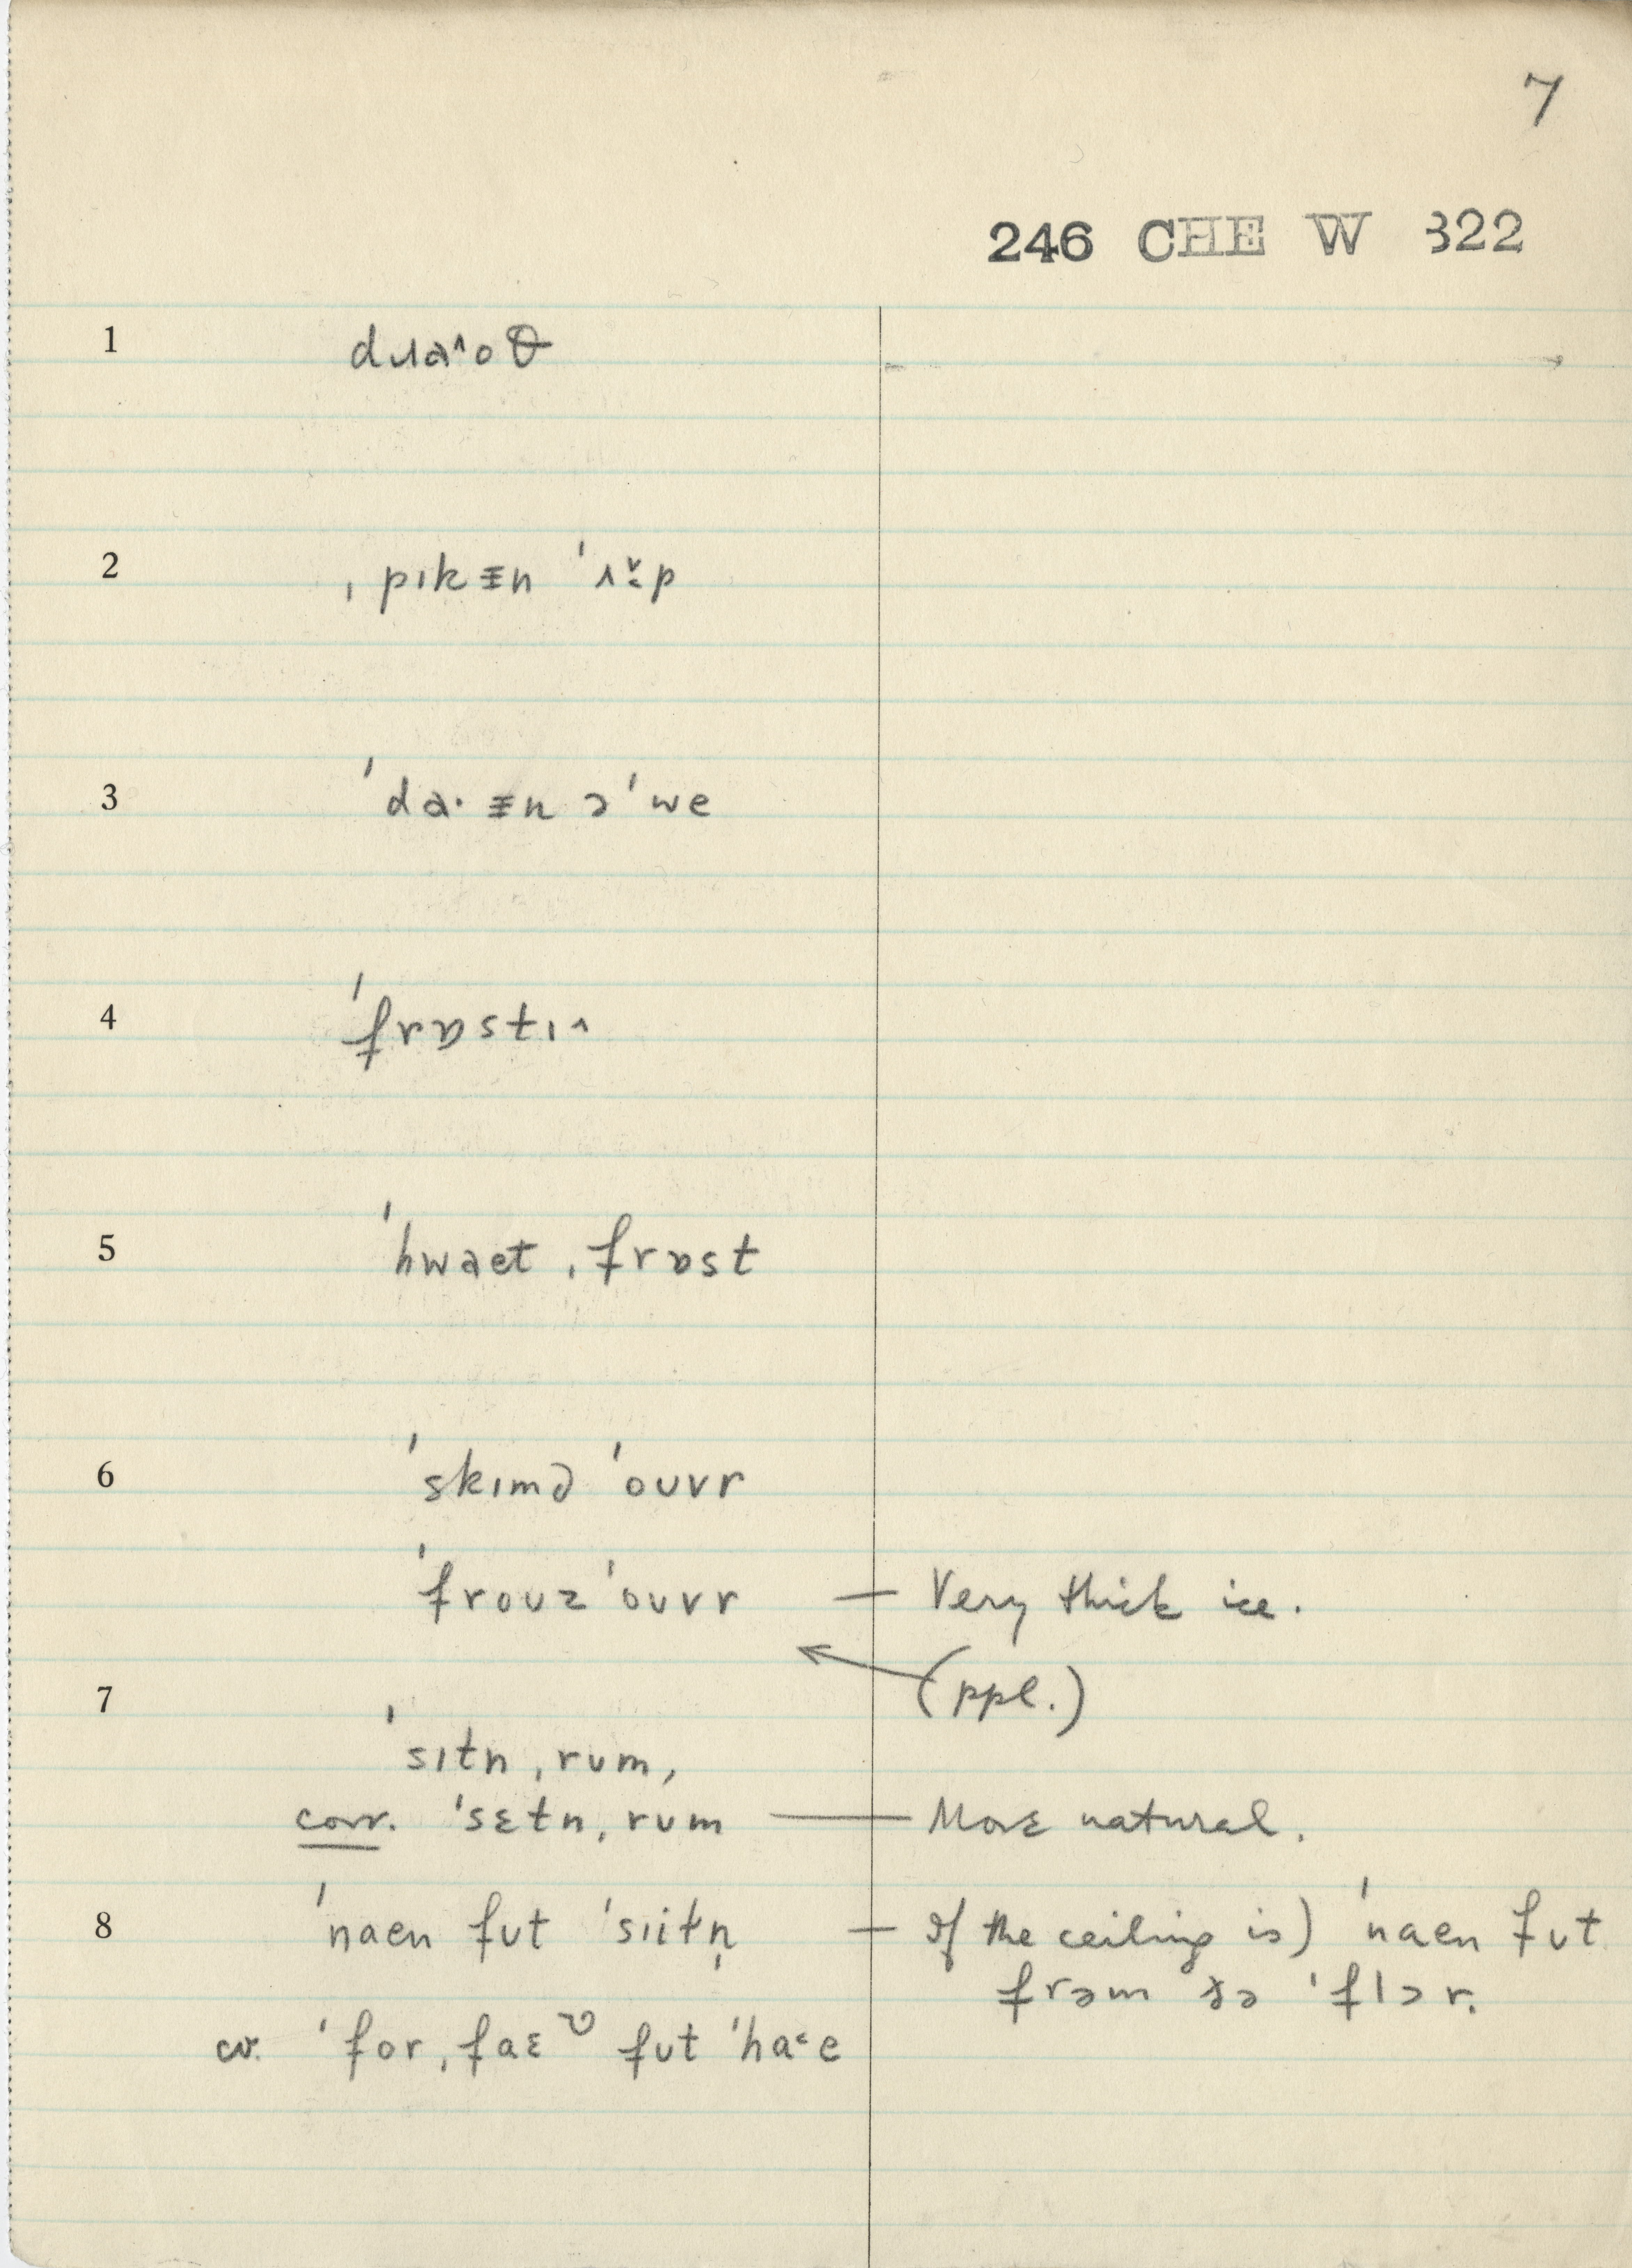 7
246 CHE W 322
1 dɹaˆoθ
2 ˌpɪkᵻn ˈʌˇ·p
3 ˈda· ᵻn əˈwe
4 ˈfrɒstɪˆ
5 ˈhwaet ˌfrɒst
6 ˈskɪmd ˈoʊvr
ˈfroʊz ˈoʊvr — Very thick ice.
(ppl.)
7 ˈsɪtn ˌrʊm,
corr. ˈsɛtn ˌrʊm — More natural.
8 ˈnaen fʊt ˈsiɪtn̩ — If the ceiling is) ˈnaen fʊt
frəm ðə ˈflɔr.
cr. ˈfor ˌfaɛʊ fʊt ˈha˂e